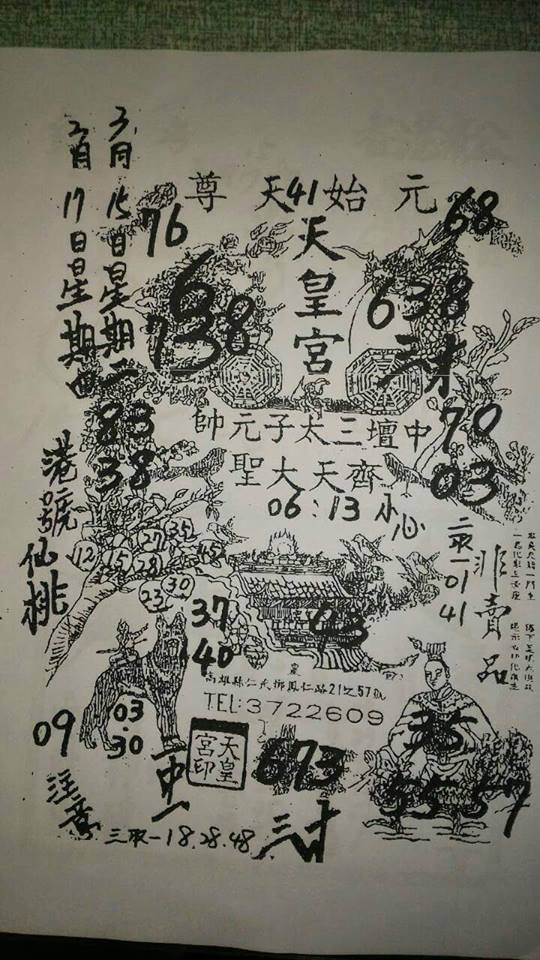 3月15日星期二
3月17日星期四
元始天41尊
76
68
天皇宮
6
738
638
中壇三太子元帥
83
38
70
03
齊天大聖
06:13 小心
港號仙桃
12 15 27 35
28 45
23 30
二取一01
41
非賣品
37
40
高雄縣仁武鄉鳳仁路21之57號
TEL:3722609
09
03.30
天皇宮印
673
35
5557
注意
三取一18.28.48